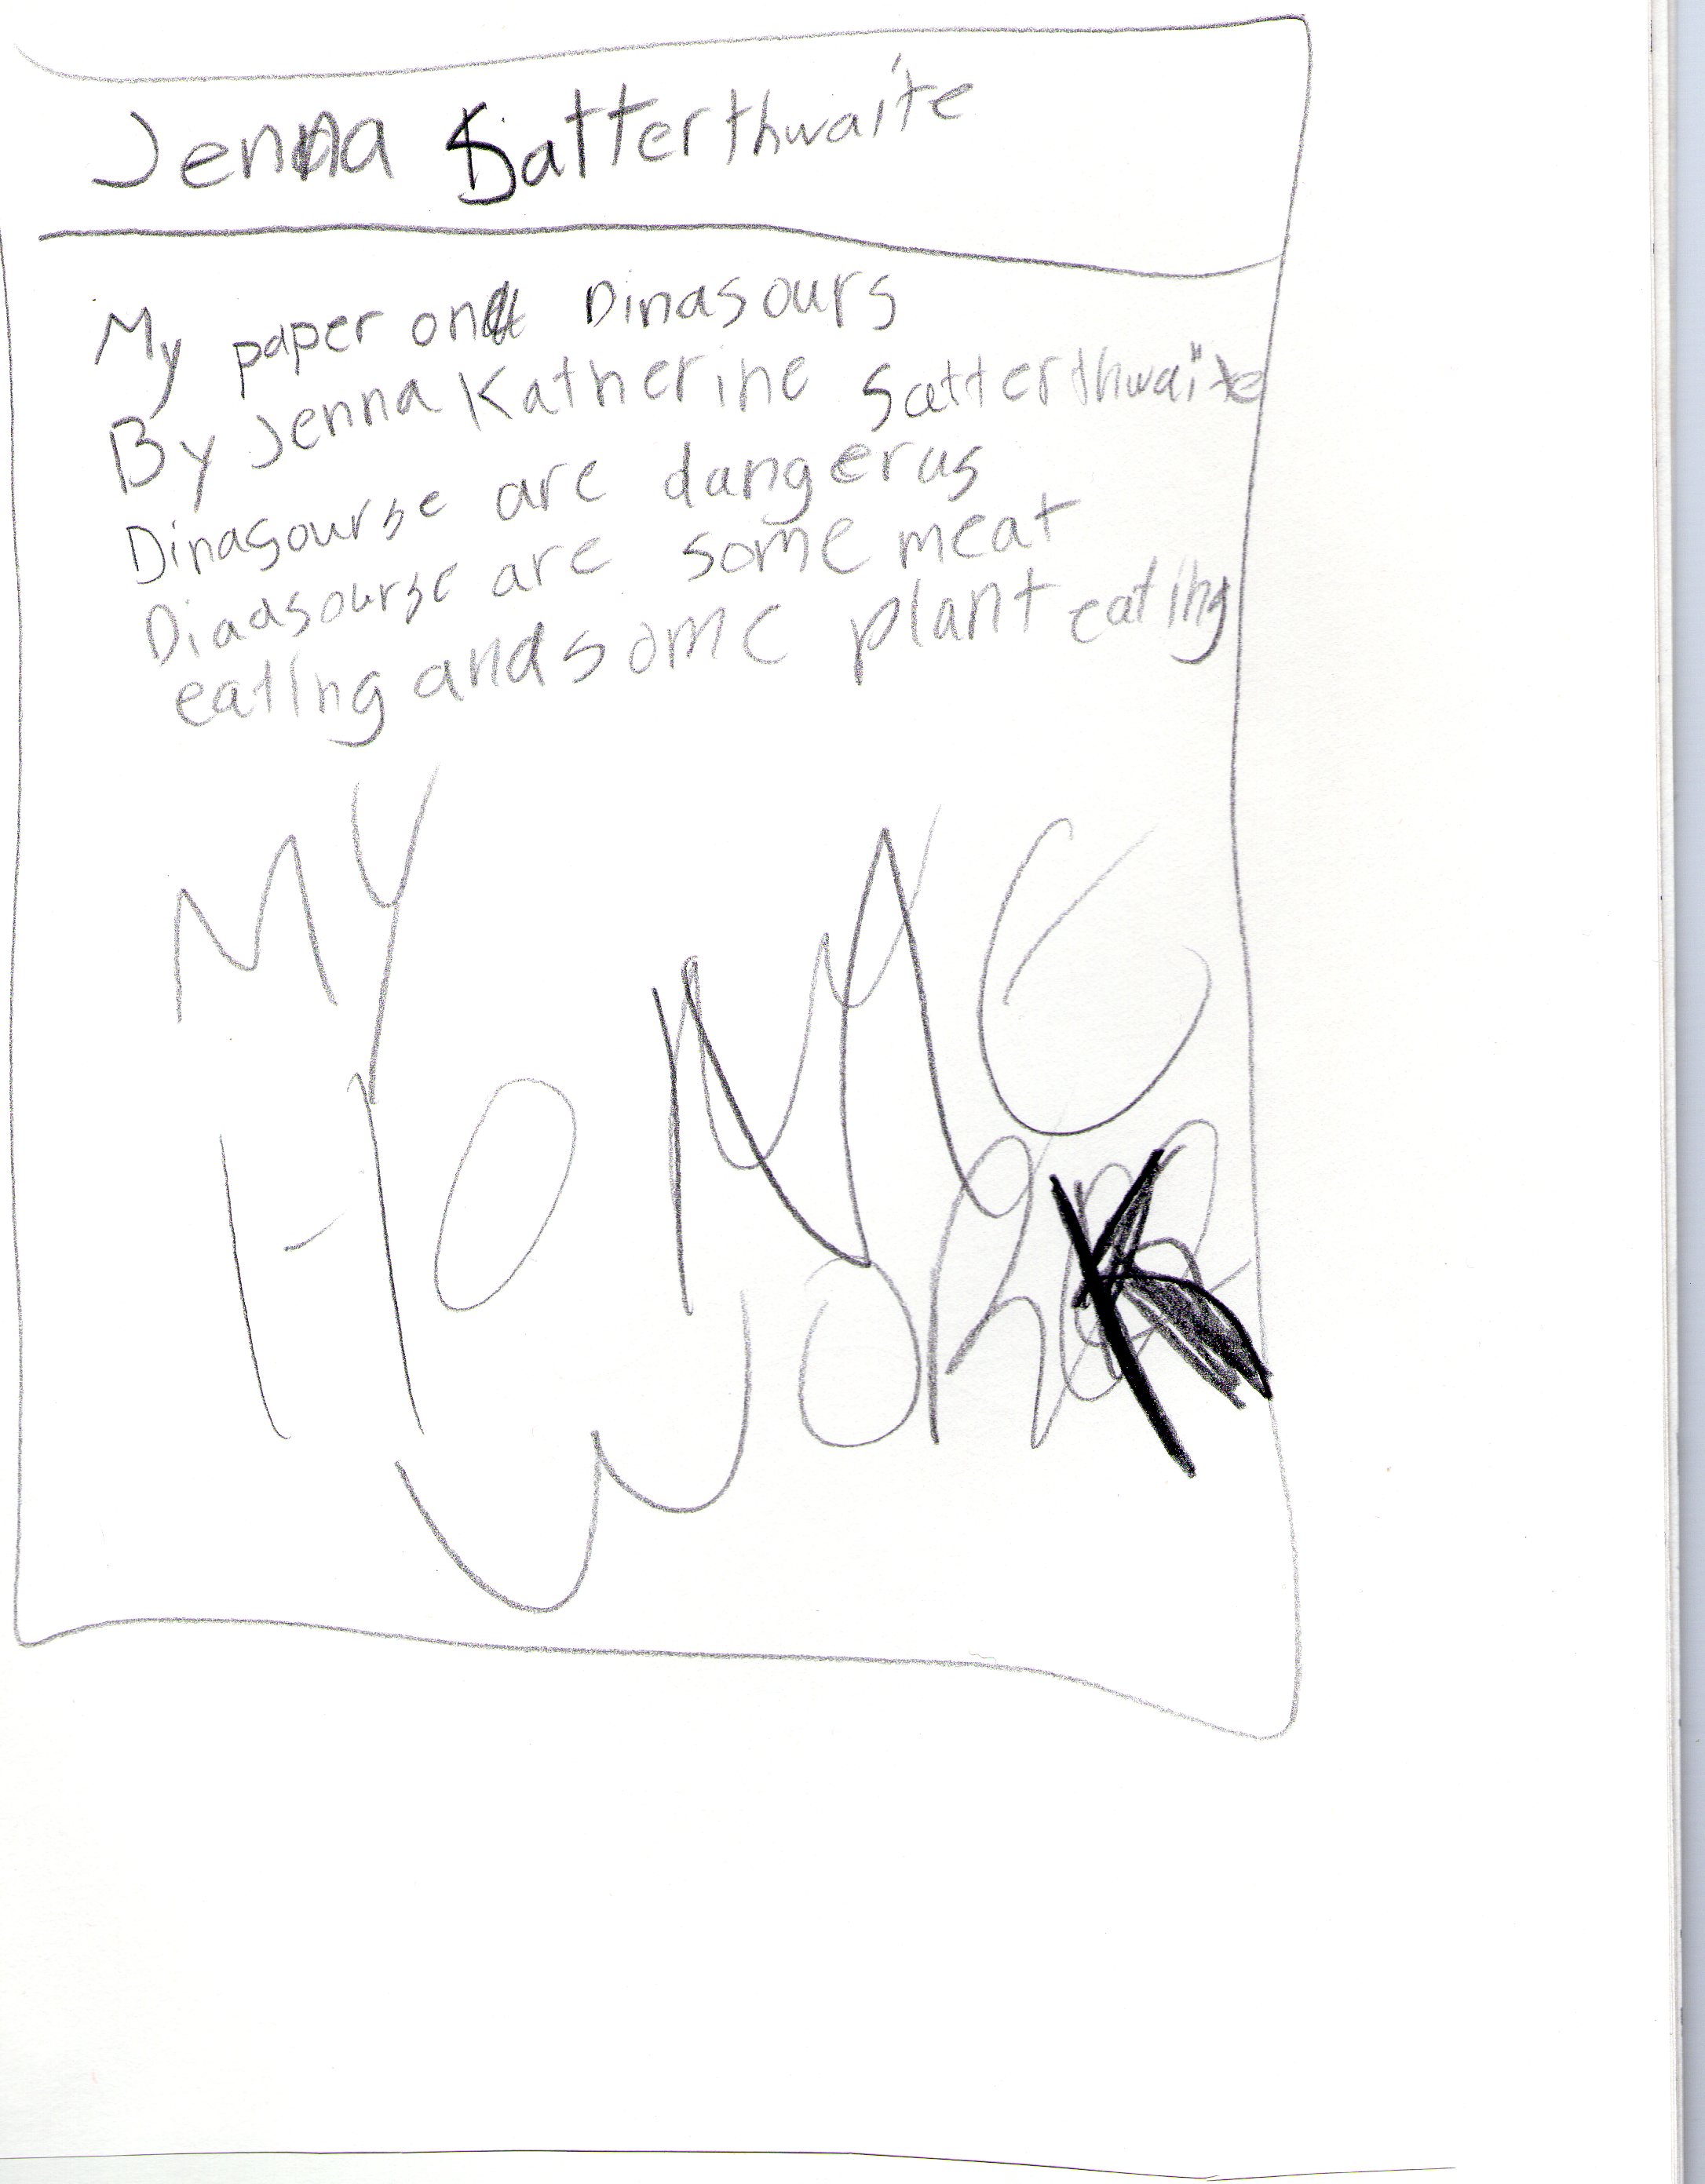 Jenna Satterthwaite
My paper on Dinasours
By Jenna Katherine Satterthwaite
Dinasourse are dangerus
Diadsourse are some meat
eating and some plant eating
MY
HOME
WORK